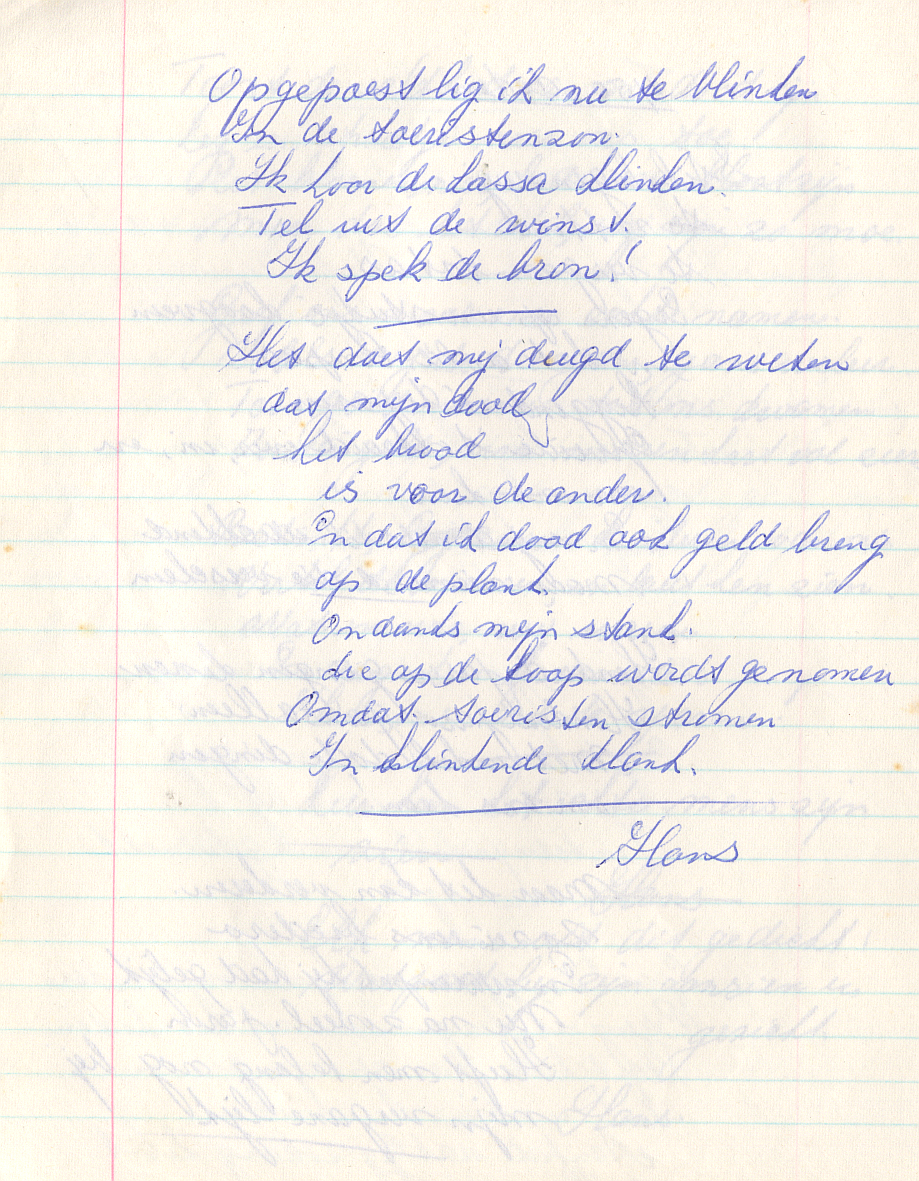 Opgepoest lig ik nu te blinken
In de toeristenzon.
Ik hoor de kassa klinken.
Tel uit de winst.
Ik spek de bron!
Het doet mij deugd te weten
dat mijn dood
het brood
is voor de ander.
En dat ik dood ook geld breng
op de plank.
Ondanks mijn stank.
die op de koop wordt genomen
Omdat toeristen stromen
In klinkende klank.
Hans